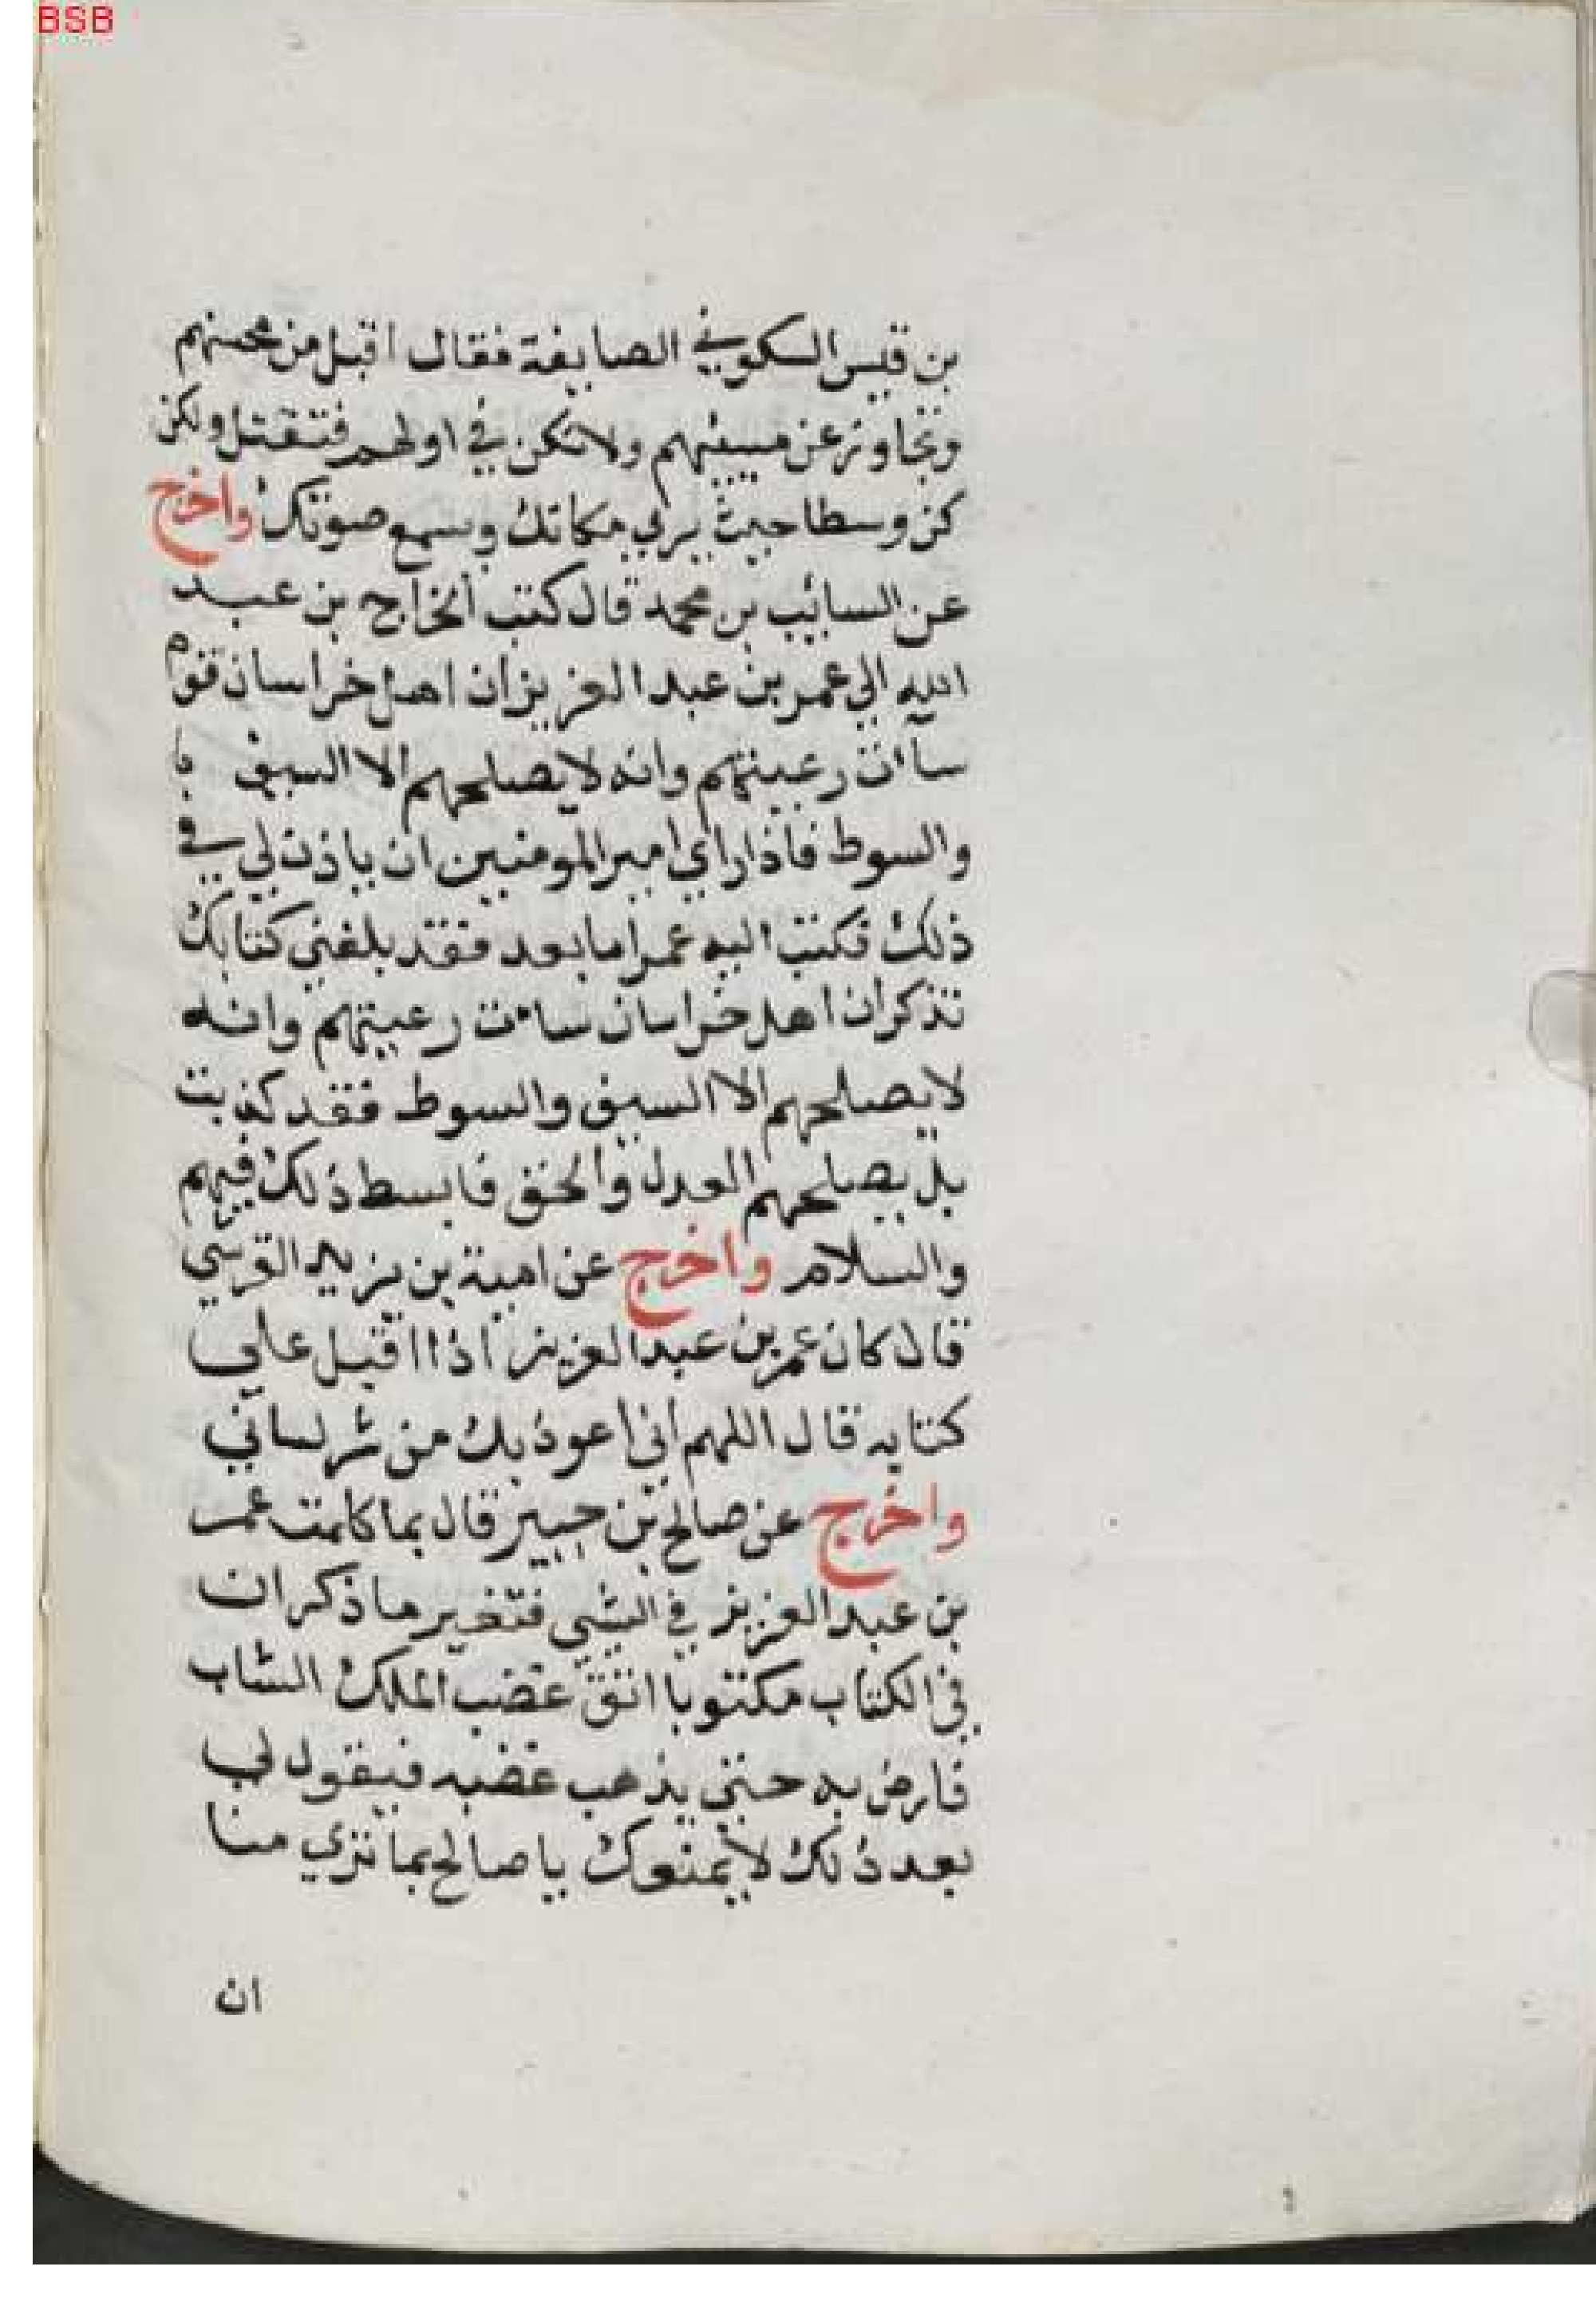 BSB
بن قيس السكوني في الصايفة فقال اقبل من محسنهم
وتجاوز عن مسيئهم ولا تكن في اولهم فتقتل ولكن
كن وسطا حيث يري مكانك ويسمع صوتك واخرج
عن السائب بن محمد قال كتب الخراج بن عبد
الله الي عمر بن عبد العزيز ان اهل خراسان قوم
ساءت رعيتهم وانه لا يصلحهم الا السيف
والسوط فاذا راي امير المومنين ان ياذن لي في
ذلك فكتب اليه عمر اما بعد فقد بلغني كتابك
تذكر ان اهل خراسان ساءت رعيتهم وانه
لا يصلحهم الا السيف والسوط فقد كذبت
بل يصلحهم العدل والحق فابسط ذلك فيهم
والسلام واخرج عن امية بن يزيد القرشي
قال كان عمر بن عبد العزيز اذا اقبل علي
كتابه قال اللهم اني اعوذ بك من شر لساني
واخرج عن صالح بن جبير قال بما كلمت عمر
بن عبد العزيز في الشي فتغير ما ذكر ان
في الكتاب مكتوبا اتق غضب الملك الشاب
فارض به حتي يذهب غضبه فيقول لي
بعد ذلك لا يمنعوك يا صالح بما تري منا
ان